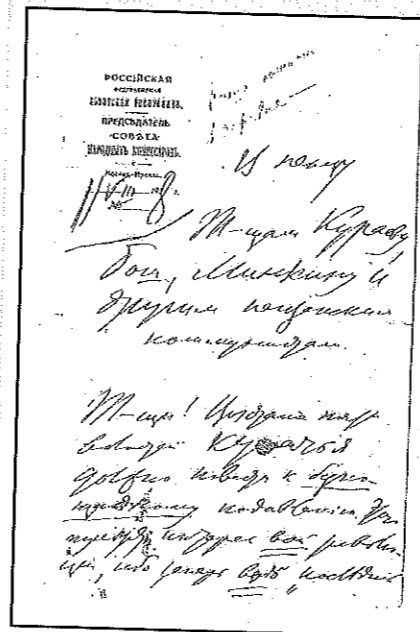 РОССІЙСКАЯ
ФЕДЕРАТИВНАЯ
СОВѢТСКАЯ РЕСПУБЛИКА.
ПРЕДСѢДАТЕЛЬ
СОВѢТА
НАРОДНЫХЪ КОМИССАРОВЪ.
Москва, Кремль.
11/VIII 1918 г.
№
В Пензу
Т-щам Кураеву,
Бош, Минкину и
другим пензенским
коммунистам.
Т-щи! Восстание пяти
волостей кулачья
должно повести к беспо-
щадному подавлению. Этого
требует интерес всей револю-
ции, ибо теперь "последний